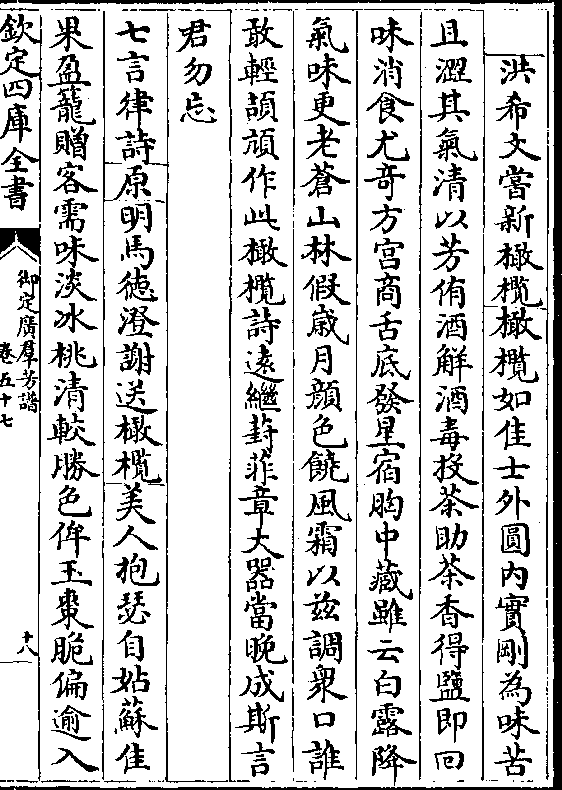 洪希文嘗新橄欖橄欖如佳士外圓内實剛為味苦
且澀其氣清以芳侑酒解酒毒投茶助茶香得鹽即回
味消食尤竒方宫商舌底發星宿胸中藏雖云白露降
氣味更老蒼山林假歲月顔色饒風霜以兹調衆口誰
敢輕頡頏作此橄欖詩遠繼葑菲章大器當晚成斯言
君勿忘
七言律詩原明馬徳澄謝送橄欖美人抱瑟自姑蘇佳
果盈籠贈客需味淡冰桃清較勝色侔玉棗脆偏逾入
欽定四庫全書
御定廣羣芳譜
卷五十七
十八